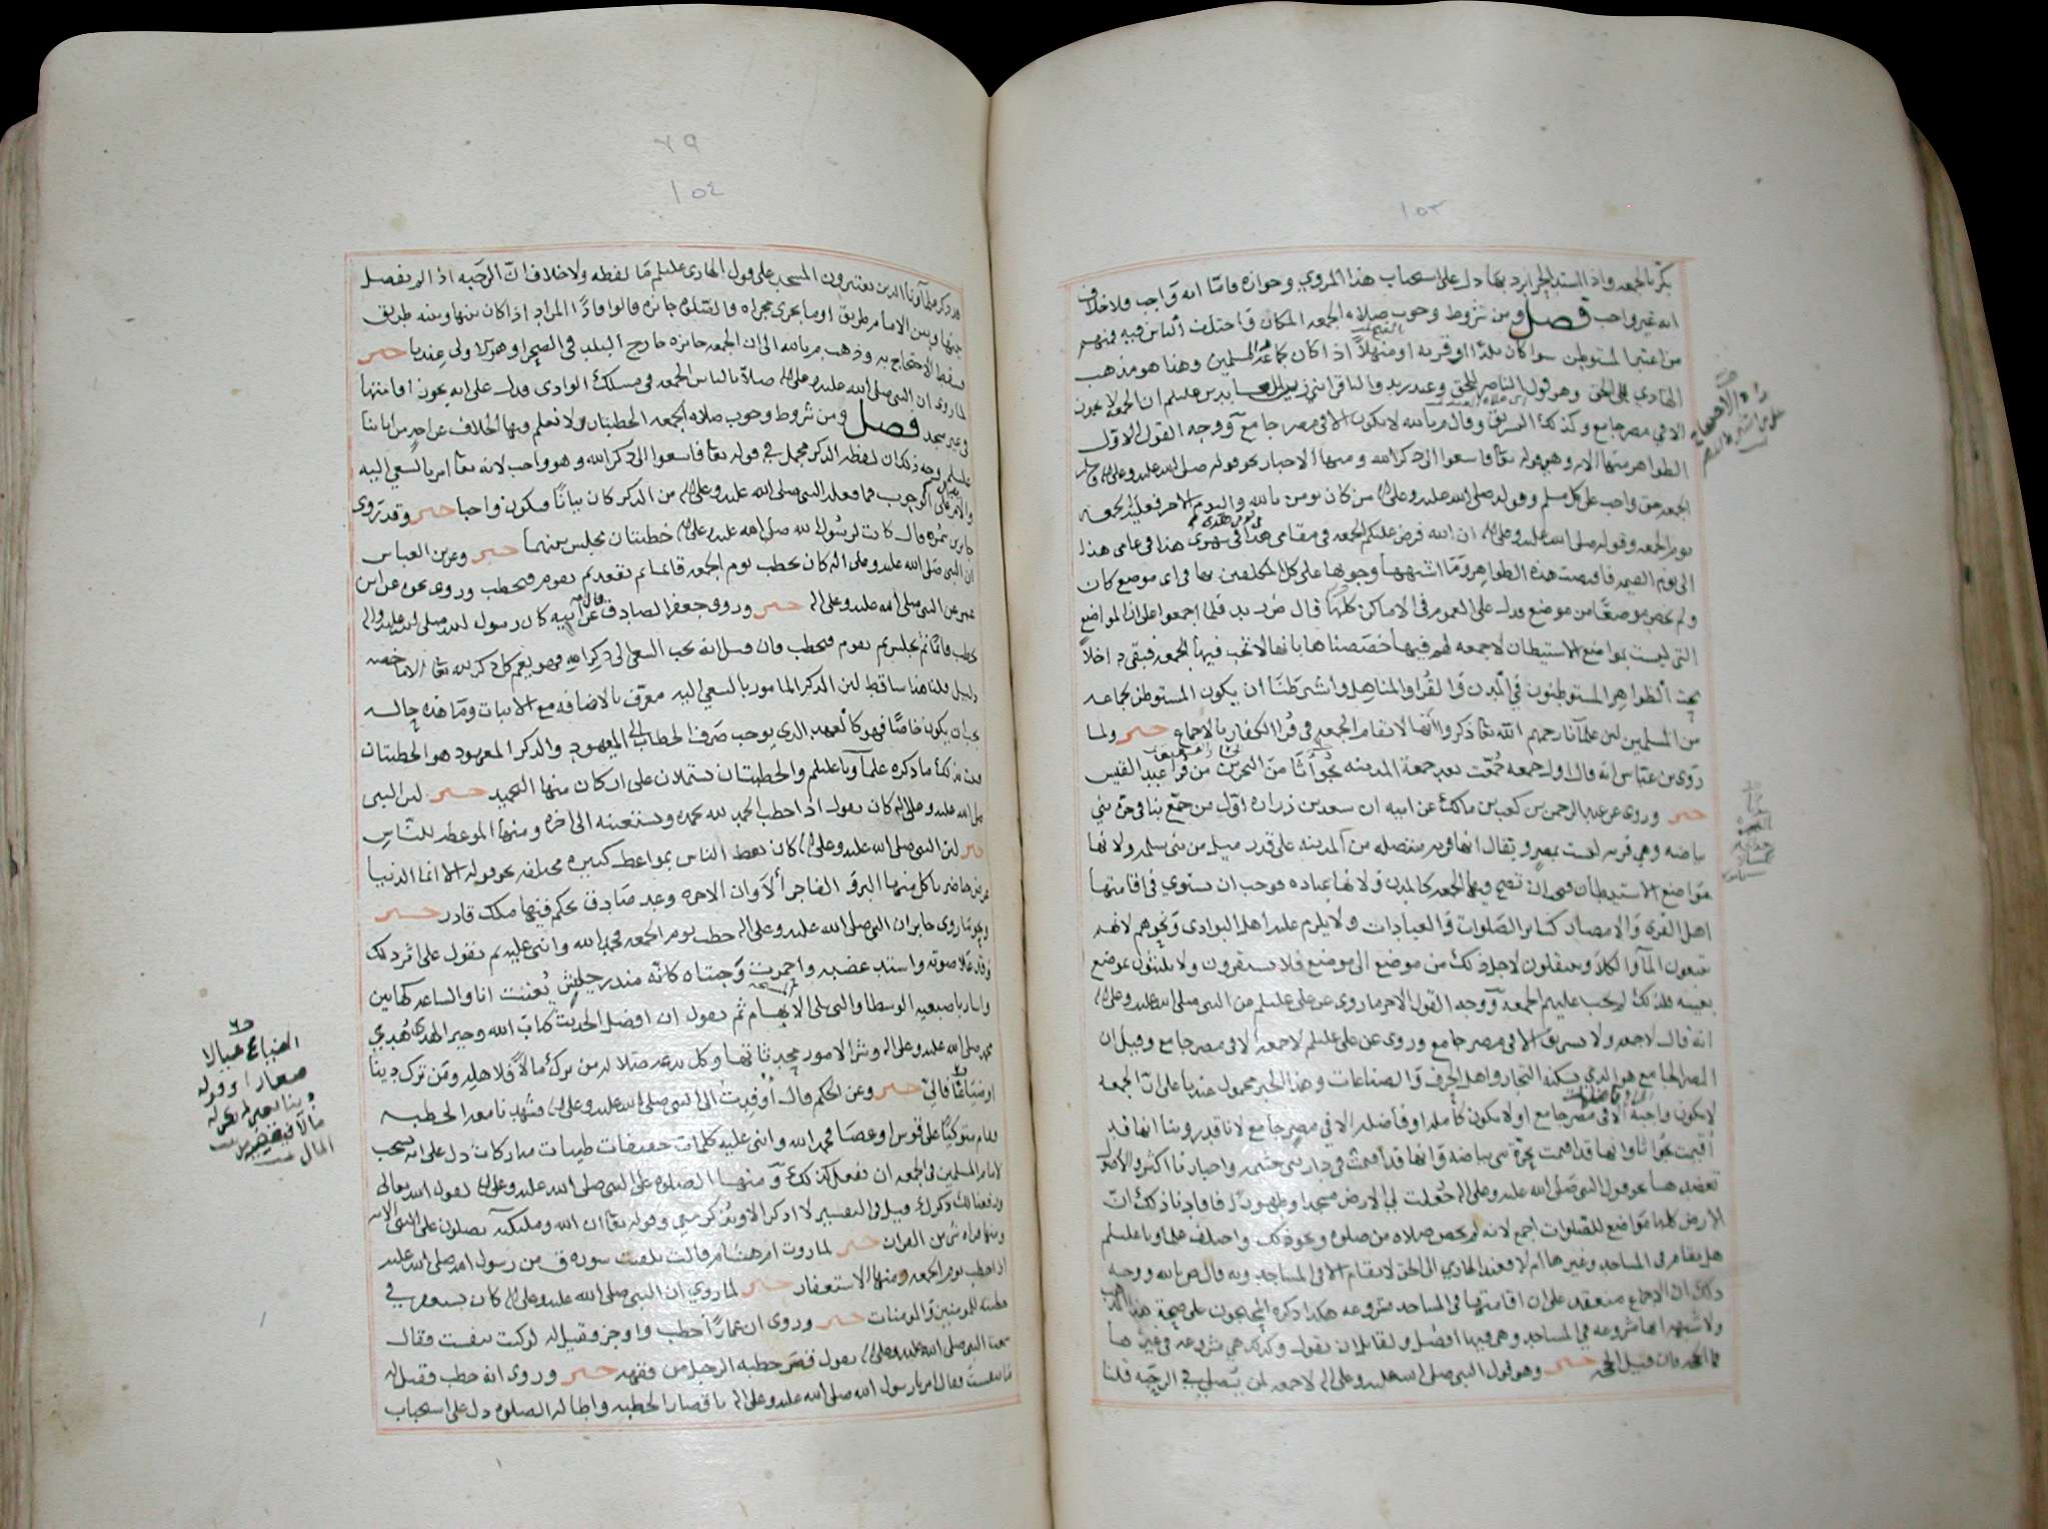 ١٥٣
بكر بالجمعه واذا اشتد الحر ابرد بها دل على استحباب هذا المروي وجوازه فامّا انه وَاجب فلا خلاف
انه غير واجب فصل ومن شروط وجوب صلاه الجمعه المكان واختلف الناس فيه فمنهم
من اعتبر المستوطن سوا كان بلدًا او قريه او منهلاً اذا كان لجماعه المسلمين وهذا هو مذهب
الهادي الى الحق وهو قول الناصر للحق وعند زيد والباقر ابني زين العابدين عليلم ان الجمعه لا يجوز
الا في مصر جامع وكذلك التشريق وقال م بالله لا يكون الا في مصر جامع ووجه القول الاول
الظواهر منها الايه وهي قوله تعا فاسعوا الى ذكر الله ومنها الاخبار نحو قوله صلى الله عليه وعلى اله
الجمعه حق واجب على كل مسلم وقوله صلى الله عليه وعلى اله من كان يومن بالله واليوم الاخر فعليه الجمعه
يوم الجمعه وقوله صلى الله عليه وعلى اله ان الله فرض عليكم الجمعه في مقامي هذا في شهري هذا في عامي هذا
الى يوم القيمه فاقتضت هذه الظواهر وما اشبهها وجوبها على كل المكلفين بها في اي موضع كان
ولم يخص موضعًا من موضع فدل على العموم في الاماكن كلها قال ض زيد فلما اجمعوا على ان المواضع
التي ليست بمواضع الاستيطان لا جمعه لهم فيها خصصناها بانها لا تجب فيها الجمعه فبقي داخلاً
تحت الظواهر المستوطنون في المدن والقُرا والمناهل واشترطنا ان يكون المستوطن لجماعه
من المسلمين لان علمآنا رحمهم الله تعا ذكروا انها لا تقام الجمعه في قُرا الكفار بالاجماع خبر ولما
روى بن عباس انه قال اول جمعه جُمّعت بعد جمعة المدينه بجواثا من البحرين من قُرا عبد القيس
خبر وروى عن عبد الرحمن بن كعب بن مالك عن ابيه ان سعد بن زراره اوّل من جمّع بنا في حره بني
بياضه وهي قريه ليست بمصر ويقال انها قريه منفصله من المدينه على قدر ميل من بني سلمه ولانها
مواضع الاستيطان فيجب ان تصح فيها الجمعه كالمدن ولانها عباده فوجب ان يستوي في اقامتها
اهل القرى والامصار كسائر الصَلوات والعبادات ولا يلزم عليه اهل البوادي ونحوهم لانهم
يتبعون المآ والكلأ وينتقلون لاجل ذلك من موضع الى موضع فلا يستقرون ولا يلبثون بموضع
بعينه فلذلك لم يجب عليهم الجمعه ووجه القول الاخر ما روى عن علي عليلم عن النبي صلى الله عليه وعلى اله
انه قال لا جمعه ولا تشريق الا في مصر جامع وروى عن علي عليلم لا جمعه الا في مصر جامع وقيل ان
المصر الجامع هو الذي يسكنه التجار واهل الحِرف والصناعات وهذا الخبر محمول عندنا على ان الجمعه
لا يكون واجبه الا في مصر جامع او لا يكون كامله او فاضله الا في مصر جامع لانا قد روينا انها قد
اُقيمت بجُواثا وانها قد اقيمت بحَرّة بني بياضه وانها قد اقيمت في دار بني خثيمه واخبارنا اكثر والاصول
تعضدها نحو قول النبي صلى الله عليه وعلى اله جُعلت لي الارض مسجدا وطهورًا فافادنا ذلك ان
الارض كلها مواضع للصلوات اجمع لانه لم يخص صلاه من صلوه ونحو ذلك واختلف علماونا عليلم
هل يقام في المساجد وغيرها ام لا فعند الهادي الى الحق لا يقام الا في المساجد وبه قال ص بالله ووجه
ذلك ان الاجماع منعقد على ان اقامتها في المساجد مشروعه هكذا ذكره
ولا شبهه انها مشروعه في المساجد وهي فيها افضل ولقائل ان يقول وكذلك هي مشروعه في غيرها
فان قيل خبر وهو قول النبي صلى الله عليه وعلى اله لا جمعه لمن يُصلي في الرحَبه قلنا
٧٩
١٥٤
قد ذكر علمآونا الذين يعتبرون المسجد على قول الهادي عليلم مَا لفظه ولا خلاف انّ الرحَبه اذا لم يفصل
بينها وبين الامام طريق او ما يجري مجراه فالصَلوة جائزه قالوا فاذًا المراد اذا كان بينها وبينه طريق
فسقط الاحتجاج به وذهب م بالله الى ان الجمعه جائزه خارج البلد في الصحرا وهو الاولى عندنا خبر
لما روى ان النبي صلى الله عليه وعلى اله صلاَّ بالناس الجمعه في مسلك الوادي فدل على انه يجوز اقامتها
في غير مسجد فصل ومن شروط وجوب صلاه الجمعه الخطبتان ولا نعلم فيها الخلاف عن احد من ابائنا
عليلم وجه ذلك ان لفظه الذكر مجمل في قوله تعا فاسعوا الى ذكر الله وهو واجب لانه تعا امر بالسعي اليه
والامر على الوجوب فما فعله النبي صلى الله عليه وعلى اله من الذكر كان بيانًا فيكون واجبا خبر وقد روى
جابر بن سمُره قال كانت لرسُول الله صلى الله عليه وعلى اله خطبتان يجلس بينهما خبر وعن بن العباس
ان النبي صَلى الله عليه وعلى اله كان يخطب يوم الجمعه قائما ثم يقعد ثم يقوم فيخطب وروى نحوه عن ابن
عمر عن النبي صلى الله عليه وعلى اله خبر وروى جعفر الصادق عن ابيه قال كان رسول الله صلى الله عليه واله
يخطب قائمًا ثم يجلس ثم يقوم فيخطب فان قيل انه يجب السعي الى ذكر الله فهو يعم كل ذكر لله تعا الا ما خصه
دليل قلنا هذا ساقط لان الذكر المامور بالسعي اليه معرّف بالاضافه مع الاثبات وما هذه حاله
يجب ان يكون خاصًا فهو كالعهد الذي يوجب صَرف الخطاب الى المعهود والذكر المعهود هو الخطبتان
فثبت بذلك ما ذكره علمآونا عليلم والخطبتان يشتملان على اركان منها التحميد خبر لان النبي
صلى الله عليه وعلى اله كان يقول اذا خطب الحمد لله نحمده ونستعينه الى اخره ومنها الموعظه للنّاس
خبر لان النبي صلى الله عليه وعلى اله كان يعظ الناس بمواعظ كثيره مختلفه نحو قوله الا انما الدنيا
عرض حاضر ياكل منها البر والفاجر ألا وان الاخره وعد صَادق يحكم فيها ملك قادر خبر
ونحو ما روى جابر ان النبي صلى الله عليه وعلى اله خطب يوم الجمعه فحمد الله واثنى عليه ثم يقول على اثر ذلك
وقد عَلا صوته واشتد غضبه واحمرت وَجنتاه كانّه منذر جيشٍ بُعثت انا والساعه كهاتين
واشار باصبعيه الوسطا والتي تلي الابهام ثم يقول ان افضل الحديث كتاب الله وخير الهدى هَدي
محمد صلى الله عليه وعلى اله وشر الامور محدثاتها وكل بدعه ضلاله من ترك مالاً فلاهله ومَن ترك دينا
او ضياعًا فاليّ خبر وعن الحكم قال أُوفِدتُ الى النبي صلى الله عليه وعلى اله فشهدنا معه الخطبه
فقام متوكيًا على قوس او عصَا فحمد الله واثنى عليه كلمات خفيفات طيبات مباركات دل على انه يستحب
لامام المسلمين في الجمعه ان يفعل كذلك ومنها الصلوه على النبي صلى الله عليه وعلى اله لقول الله تعالى
ورفعنا لك ذكرك قيل في التفسير لا اُذكر الا وتُذكر معي وقوله تعا ان الله وملئكته يصلون على النبي الايه
ومنها قراه شي من القران خبر لما روت ام هشام قالت تلقنت سوره ق من رسول الله صلى الله عليه
اذ خطب يوم الجمعه ومنها الاستغفار خبر لما روي ان النبي صلى الله عليه وعلى اله كان يستغفر في
خطبته للمومنين والمومنات خبر وروى ان عمارًا خطب واوجز فقيل له لو كنت تنفست فقال
سمعت النبي صلى الله عليه وعلى اله يقول قصر خطبه الرجل من فقهه خبر وروى انه خطب فقيل له
تنفست فقال امرنا رسول الله صلى الله عليه وعلى اله باقصار الخطبه واطاله الصلوه دل على استحباب